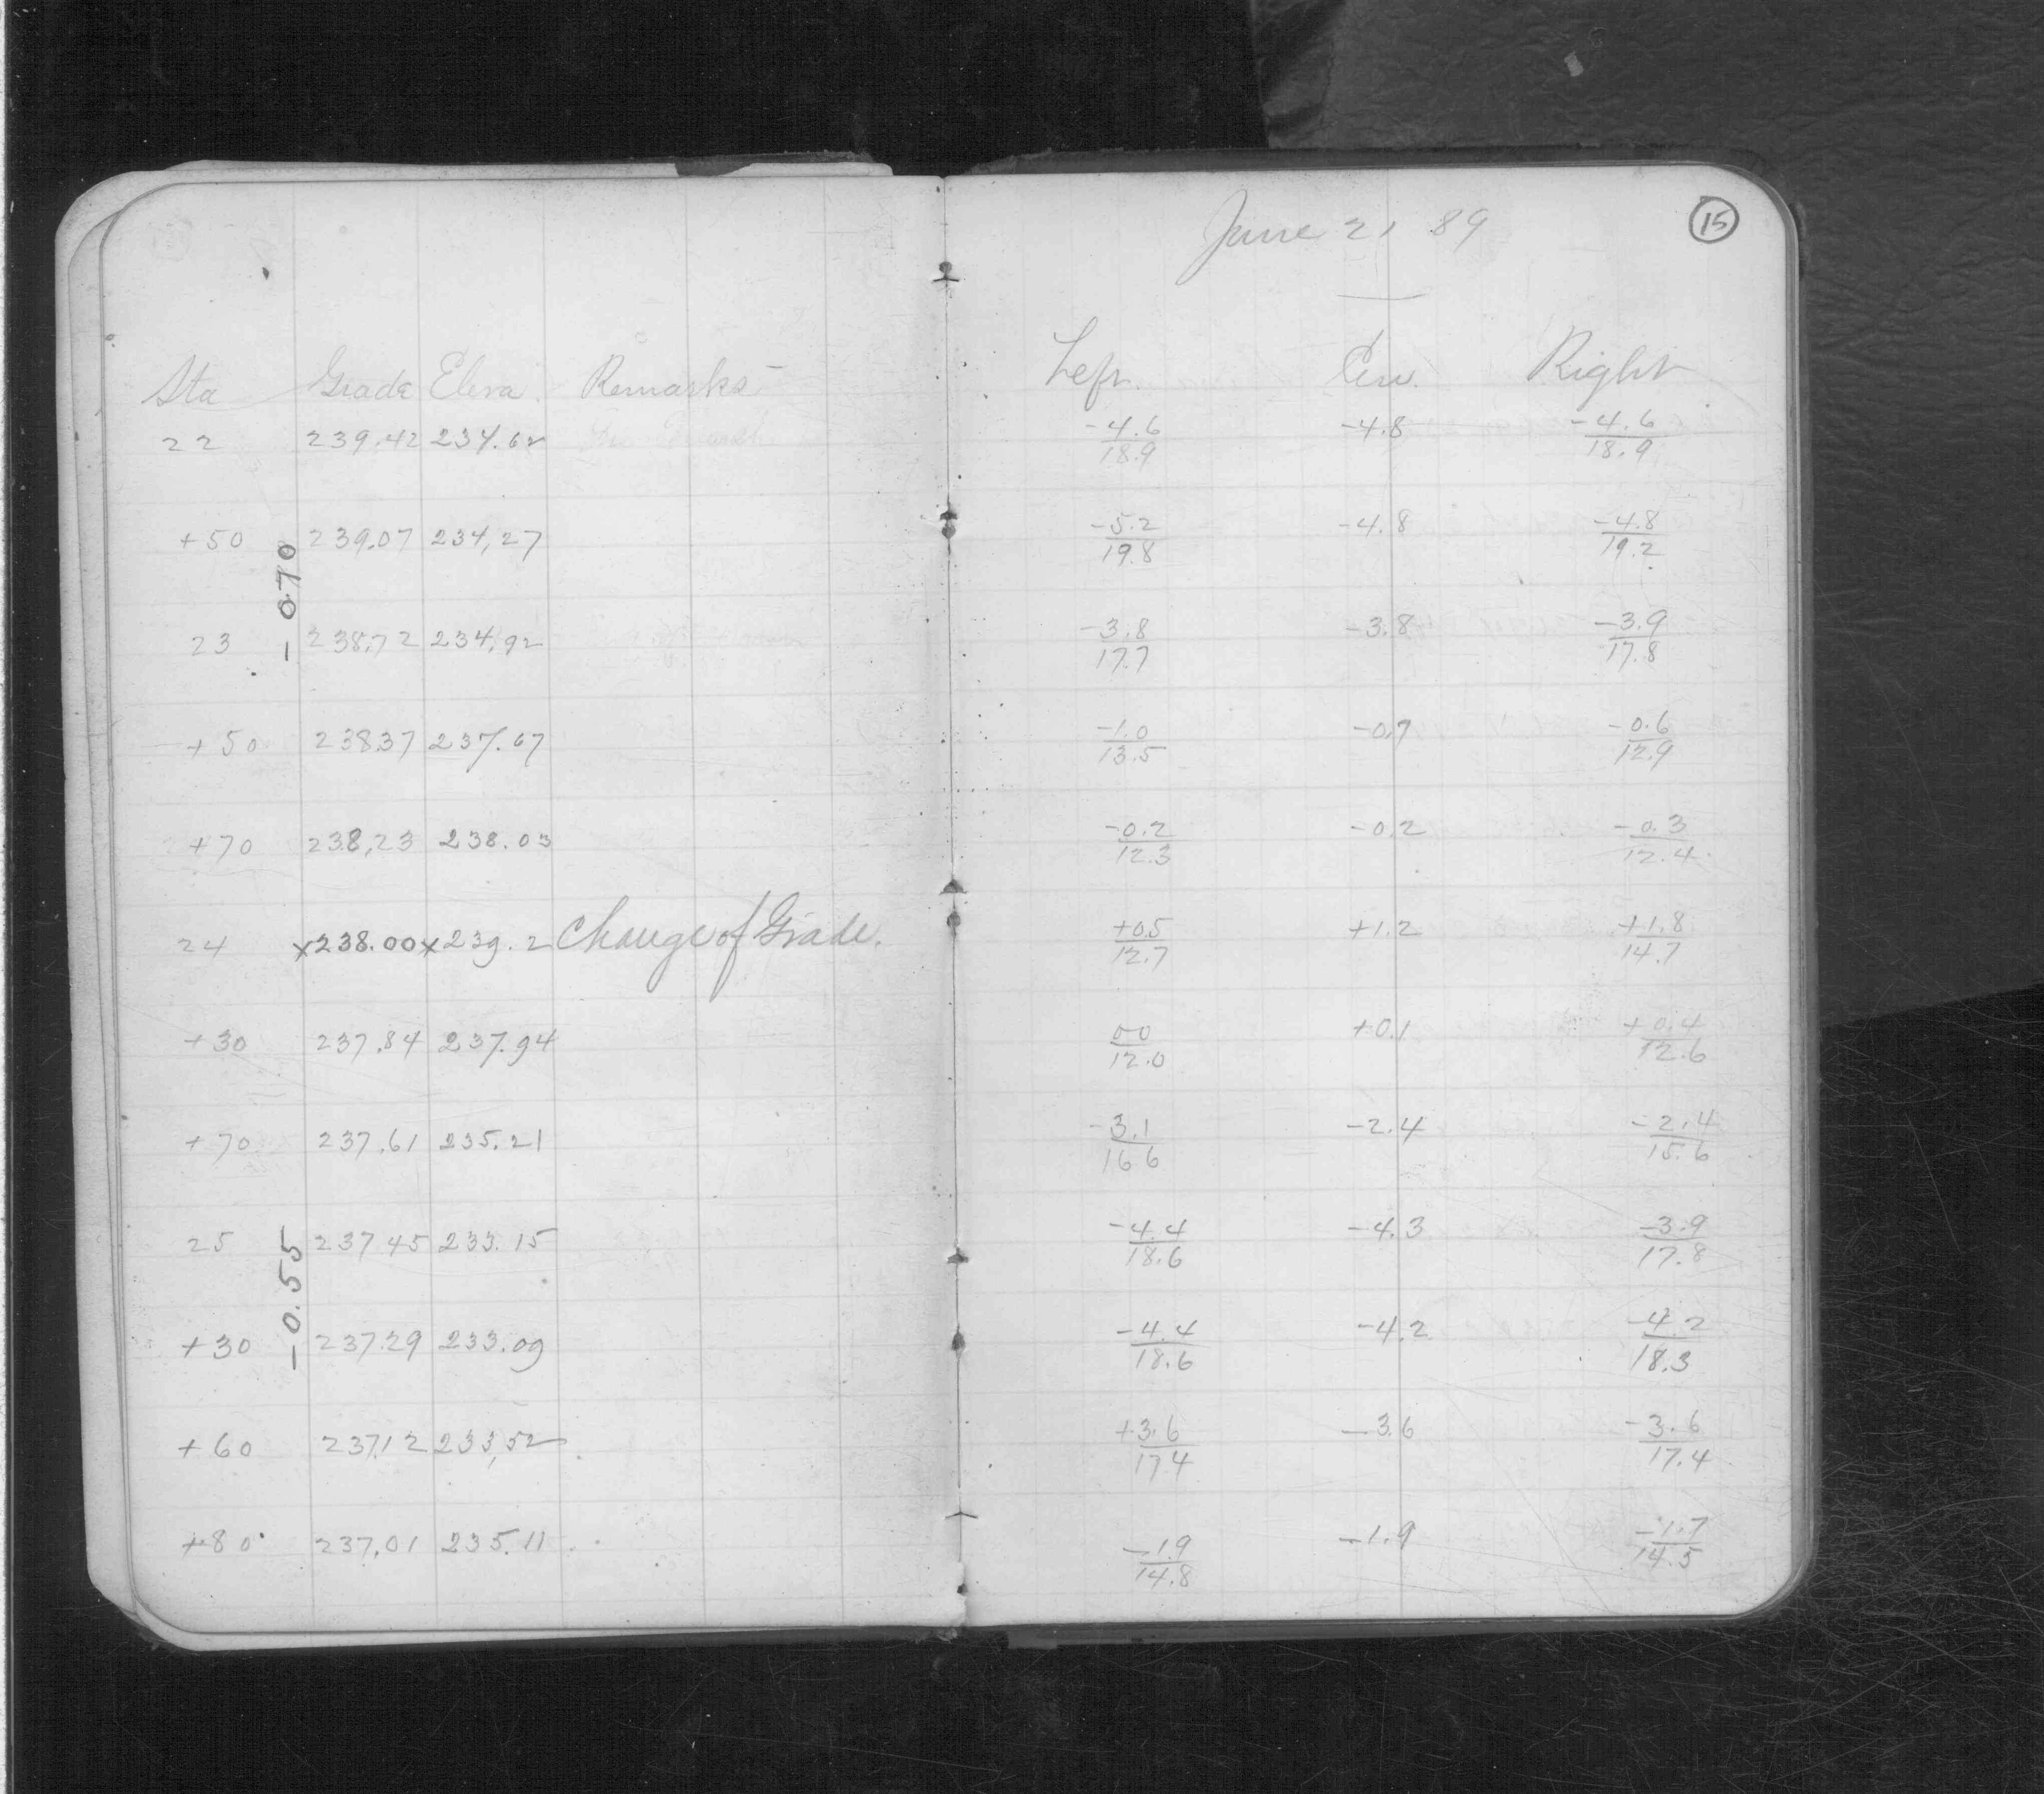 June 21 89
15
Sta Grade Eleva. Remarks Left. Cen. Right
22 239.42 234.62 -4.6/18.9 -4.8 -4.6/18.9
+50 239.07 234.27 -5.2/19.8 -4.8 -4.8/19.2
- 0.70
23 238.72 234.92 -3.8/17.7 -3.8 -3.9/17.8
+50 238.37 237.67 -1.0/13.5 -0.7 -0.6/12.9
+70 238.23 238.03 -0.2/12.3 -0.2 -0.3/12.4
24 x238.00 x239.2 Change of Grade. +0.5/12.7 +1.2 +1.8/14.7
+30 237.84 237.94 00/12.0 +0.1 +0.4/12.6
+70 237.61 235.21 -3.1/16.6 -2.4 -2.4/15.6
25 237.45 233.15 -4.4/18.6 -4.3 -3.9/17.8
- 0.55
+30 237.29 233.09 -4.4/18.6 -4.2 -4.2/18.3
+60 237.12 233.52 +3.6/17.4 -3.6 -3.6/17.4
+80 237.01 235.11 -1.9/14.8 -1.9 -1.7/14.5